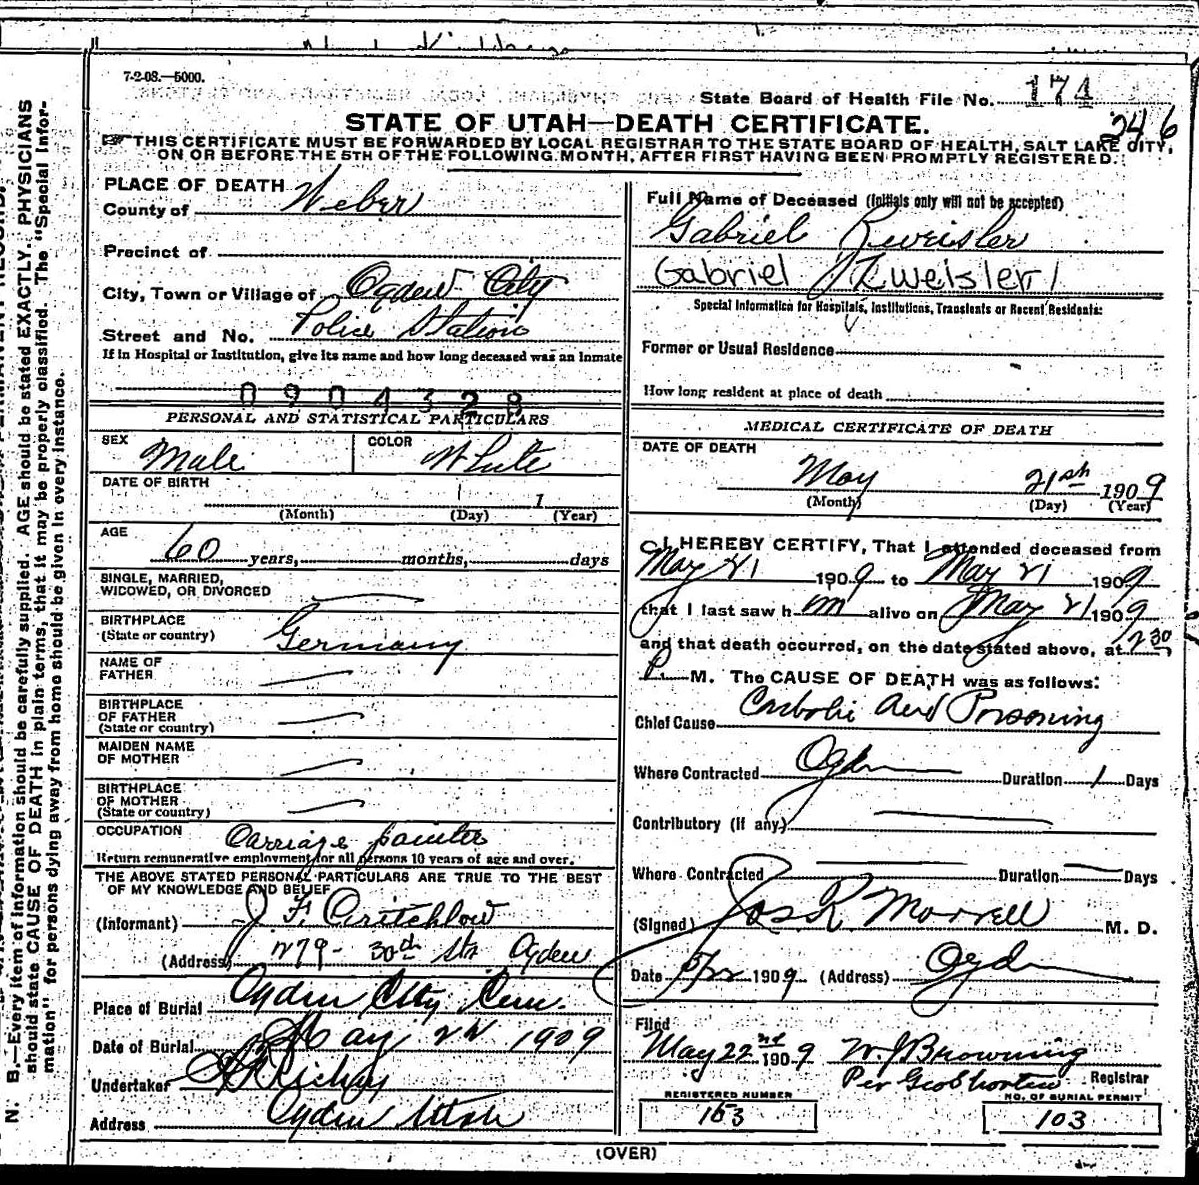 7-2-08.—5000.
State Board of Health File No. 174
246
STATE OF UTAH—DEATH CERTIFICATE.
THIS CERTIFICATE MUST BE FORWARDED BY LOCAL REGISTRAR TO THE STATE BOARD OF HEALTH, SALT LAKE CITY,
ON OR BEFORE THE 5TH OF THE FOLLOWING MONTH, AFTER FIRST HAVING BEEN PROMPTLY REGISTERED.
PLACE OF DEATH
County of Weber
Precinct of
City, Town or Village of Ogden City
Street and No. Police Station
If in Hospital or Institution, give its name and how long deceased was an inmate
0904328
PERSONAL AND STATISTICAL PARTICULARS
SEX Male
COLOR White
DATE OF BIRTH
1
(Month) (Day) (Year)
AGE
60 years, months, days
SINGLE, MARRIED,
WIDOWED, OR DIVORCED
BIRTHPLACE
(State or country) Germany
NAME OF
FATHER
BIRTHPLACE
OF FATHER
(State or country)
MAIDEN NAME
OF MOTHER
BIRTHPLACE
OF MOTHER
(State or country)
OCCUPATION Carriage painter
Return remunerative employment for all persons 10 years of age and over.
THE ABOVE STATED PERSONAL PARTICULARS ARE TRUE TO THE BEST
OF MY KNOWLEDGE AND BELIEF
(Informant) J F Critchlow
(Address) 279 - 30th St. Ogden
Place of Burial Ogden City Cem.
Date of Burial May 22 1909
Undertaker Richey
Address Ogden Utah
Full Name of Deceased (Initials only will not be accepted)
Gabriel Zweisler
Gabriel Zweisler
Special Information for Hospitals, Institutions, Transients or Recent Residents:
Former or Usual Residence
How long resident at place of death
MEDICAL CERTIFICATE OF DEATH
DATE OF DEATH
May 21st 1909
(Month) (Day) (Year)
I HEREBY CERTIFY, That I attended deceased from
May 21 1909 to May 21 1909
that I last saw him alive on May 21 1909
and that death occurred, on the date stated above, at 230
P. M. The CAUSE OF DEATH was as follows:
Chief Cause Carbolic Acid Poisoning
Where Contracted Ogden Duration 1 Days
Contributory (if any)
Where Contracted Duration Days
(Signed) Jos R Morrell M. D.
Date 5/22 1909 (Address) Ogden
Filed
May 22nd 1909 W. J Browning
Per Geo Shorten Registrar
REGISTERED NUMBER
163
NO. OF BURIAL PERMIT
103
(OVER)
N. B.—Every item of information should be carefully supplied. AGE should be stated EXACTLY. PHYSICIANS
should state CAUSE OF DEATH in plain terms, that it may be properly classified. The "Special Infor-
mation" for persons dying away from home should be given in every instance.